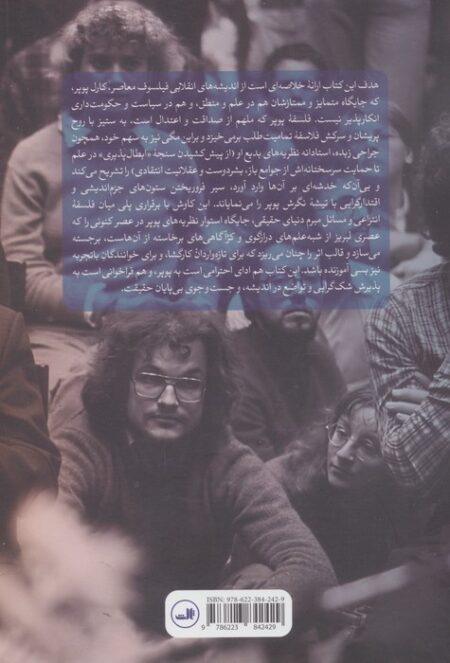 هدف این کتاب ارائهٔ خلاصه‌ای است از اندیشه‌های انقلابی فیلسوف معاصر، کارل پوپر،
که جایگاه متمایز و ممتازشان هم در علم و منطق، و هم در سیاست و حکومت‌داری
انکارپذیر نیست. فلسفهٔ پوپر که ملهم از صداقت و اعتدال است، به ستیز با روح
پریشان و سرکش فلاسفهٔ تمامیت‌طلب برمی‌خیزد و براین‌مگی نیز به سهم خود، همچون
جراحی زبده، استادانه نظریه‌های بدیع او (از پیش‌کشیدن سنجهٔ «ابطال‌پذیری» در علم
تا حمایت سرسختانه‌اش از جوامع باز، بشردوست و عقلانیت انتقادی) را تشریح می‌کند
و بی‌آن‌که خدشه‌ای بر آن‌ها وارد آورد، سیر فروریختن ستون‌های جزم‌اندیشی و
اقتدارگرایی با تیشهٔ نگرش پوپر را می‌نمایاند. این کاوش با برقراری پلی میان فلسفهٔ
انتزاعی و مسائل مبرم دنیای حقیقی، جایگاه استوار نظریه‌های پوپر در عصر کنونی را که
عصری لبریز از شبه‌علم‌های درازگوی و کژآگاهی‌های برخاسته از آن‌هاست، برجسته
می‌سازد و قالب اثر را چنان می‌ریزد که برای تازه‌واردان کارگشا، و برای خوانندگان باتجربه
نیز بسی آموزنده باشد. این کتاب هم ادای احترامی است به پوپر، و هم فراخوانی است به
پذیرش شک‌گرایی و تواضع در اندیشه، و جست‌وجوی بی‌پایان حقیقت.
ISBN: 978-622-384-242-9
9 786223 842429
ثالث